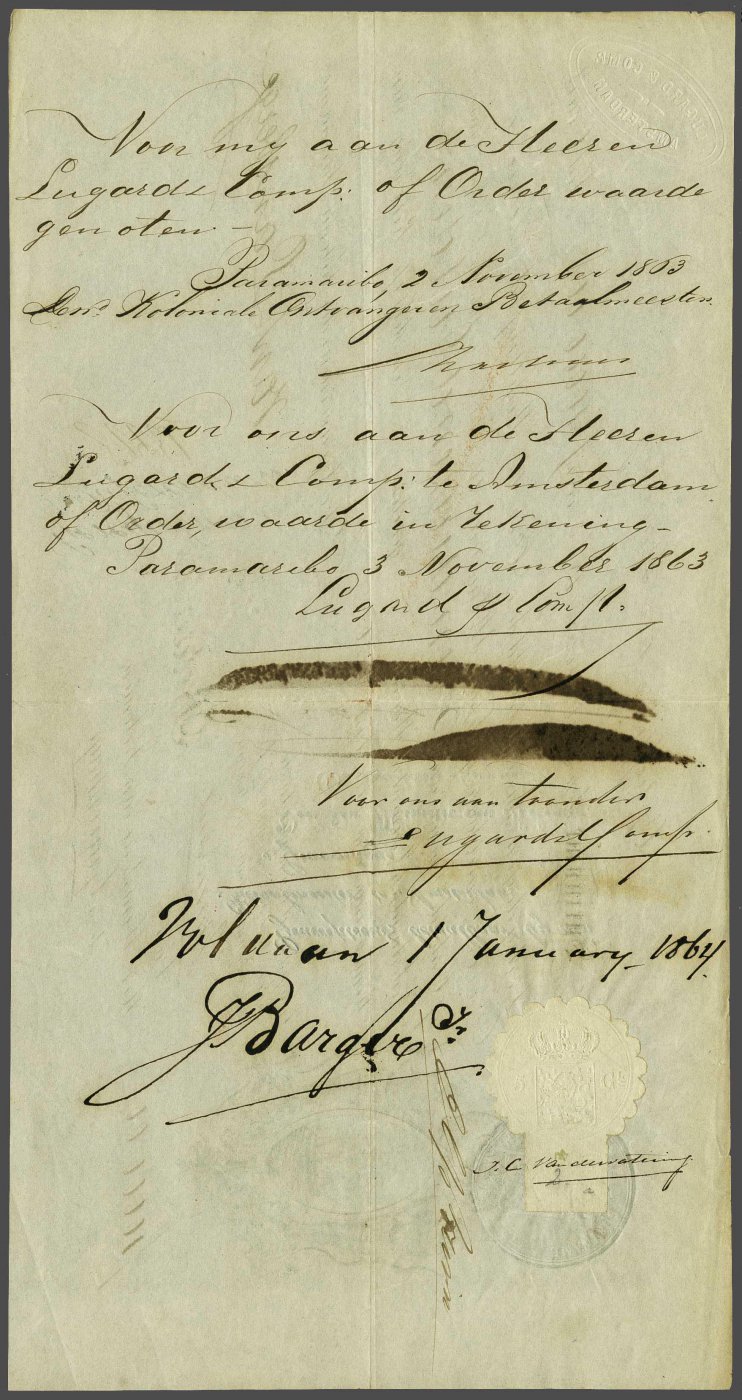 Voor my aan de Heeren
Lugard & Comp: of Order waarde
genoten –
Paramaribo, 2 November 1863
De wd. Koloniale Ontvanger en Betaalmeester.
Voor ons aan de Heeren
Lugard & Comp: te Amsterdam
of Order, waarde in rekening –
Paramaribo 3 November 1863
Lugard & Comp.
Voor ons aan
Lugard & Comp.
Voldaan 1 January 1864.
J Barger Jr.
J. C. Van de Watering